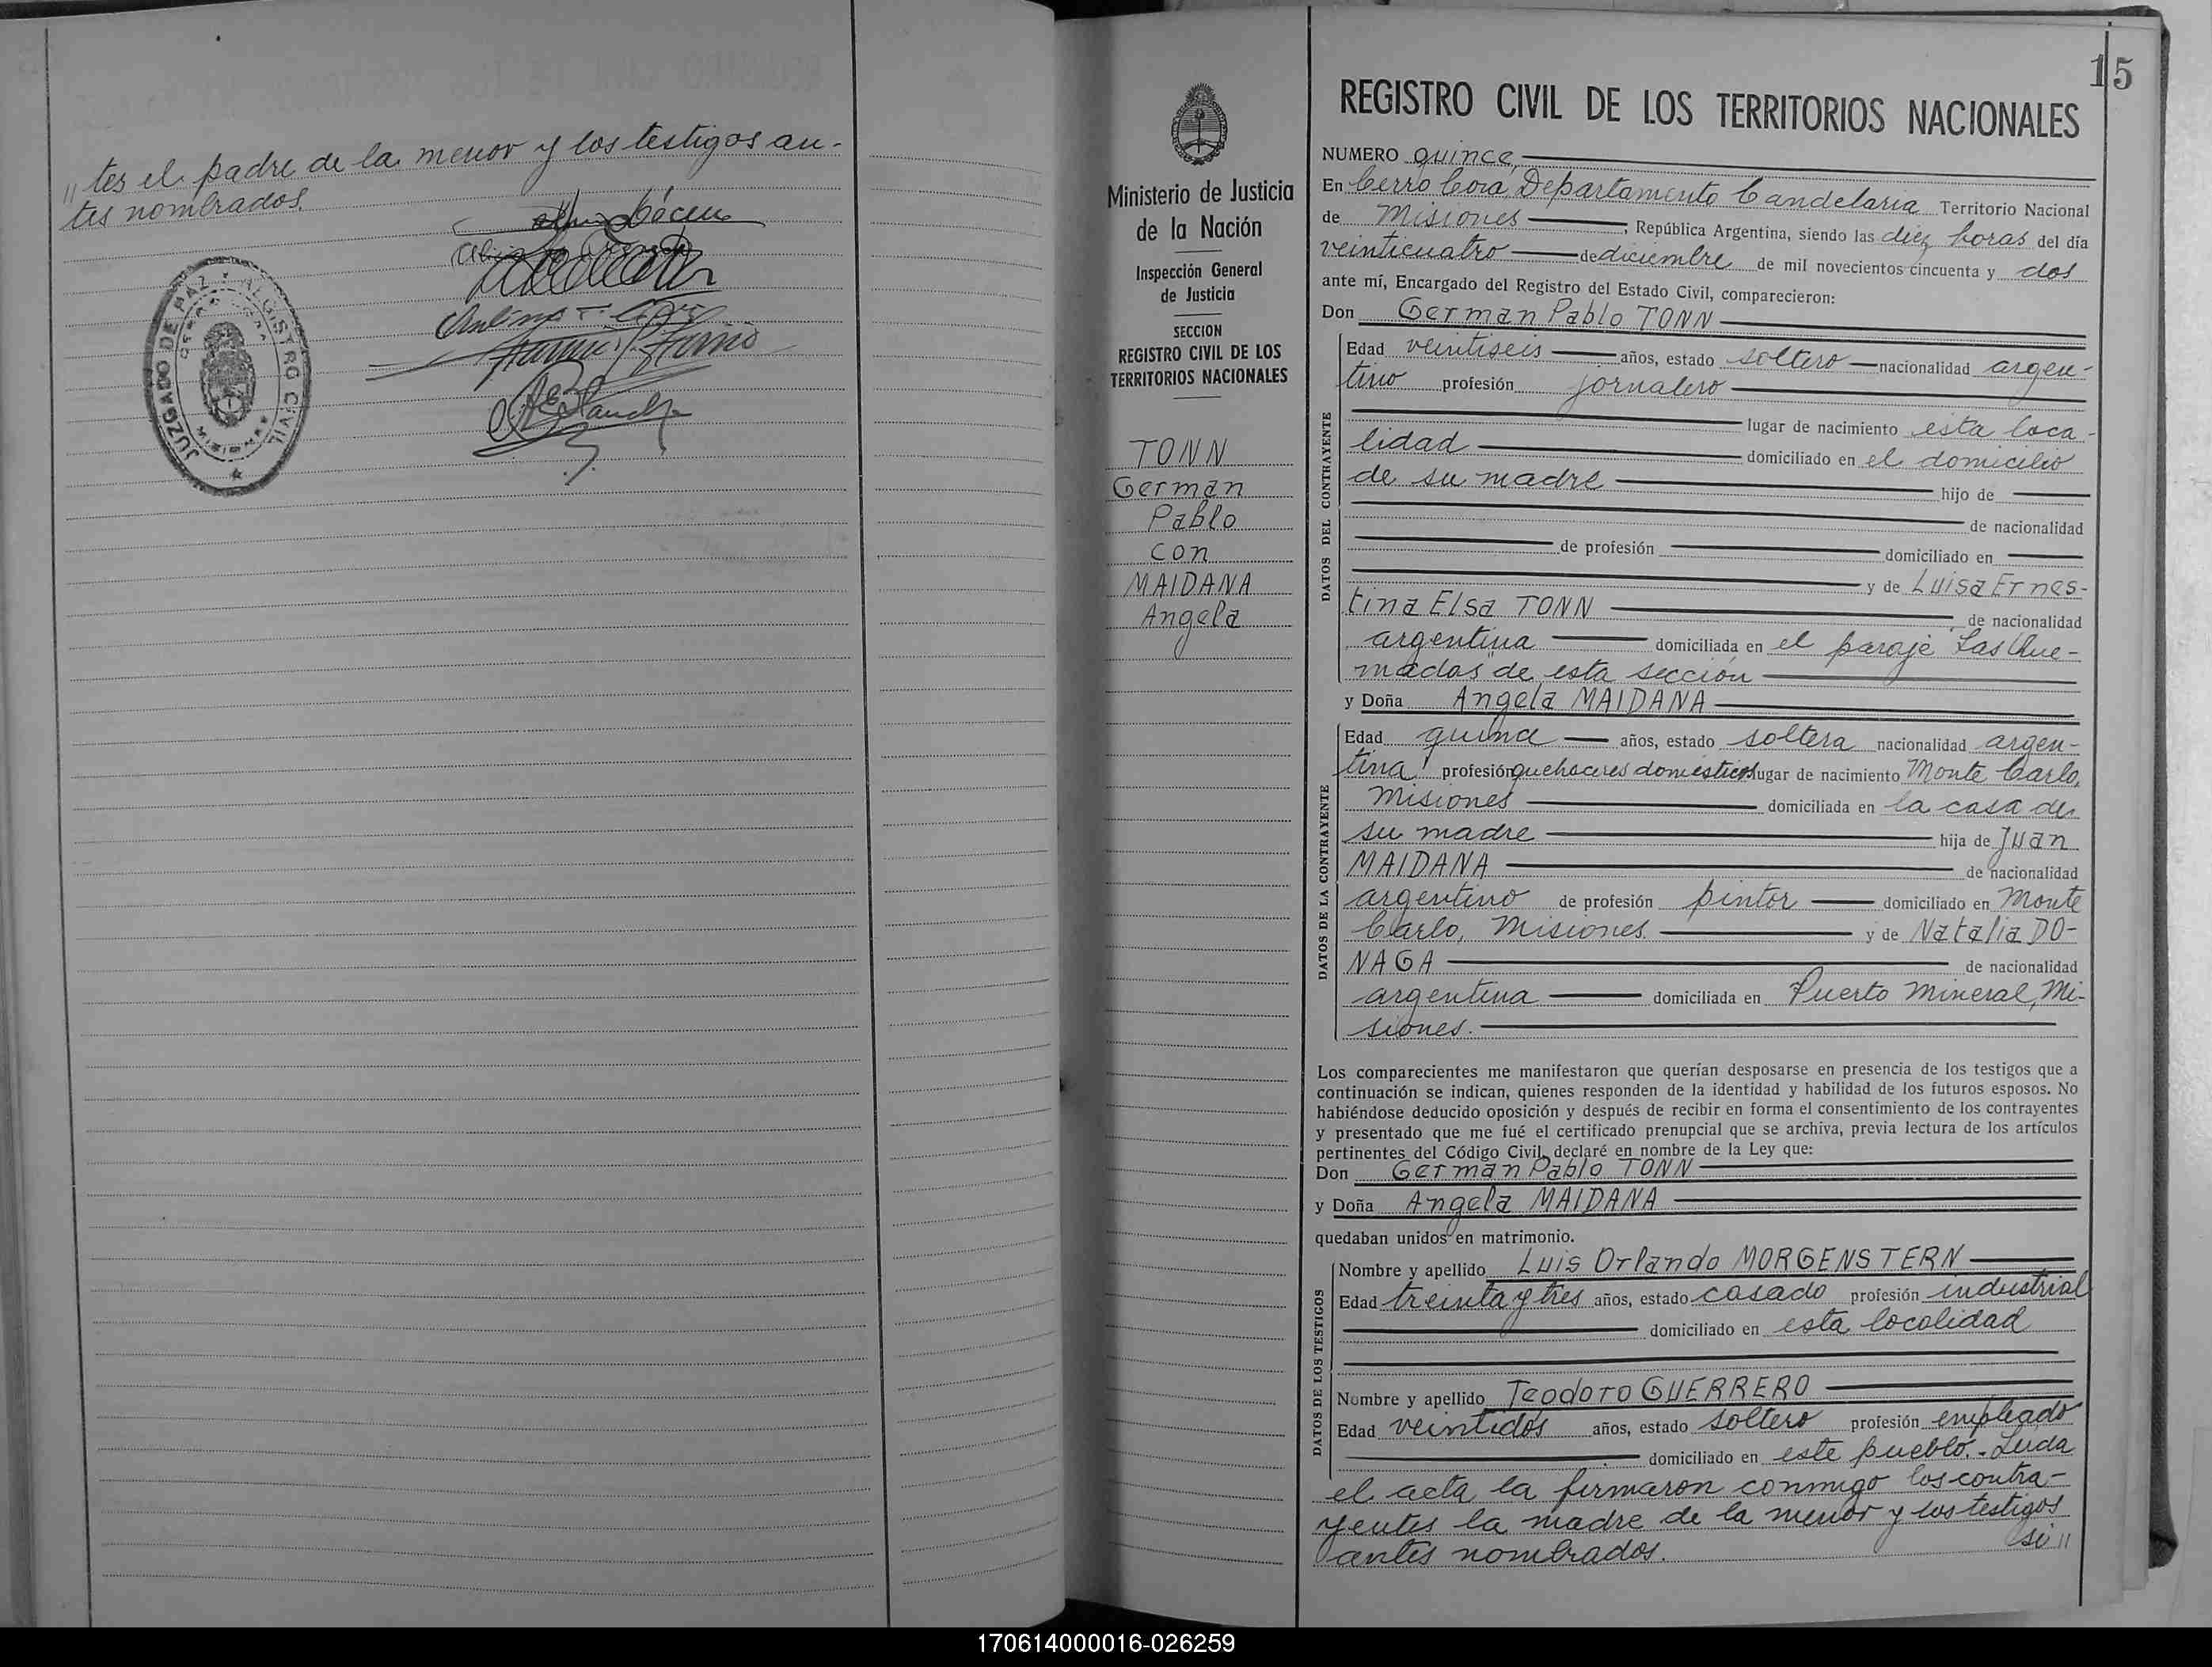 〃tes el padre de la menor y los testigos an-
tes nombrados.
JUZGADO DE PAZ Y REGISTRO CIVIL
MISIONES
15
Ministerio de Justicia
de la Nación
Inspección General
de Justicia
SECCION
REGISTRO CIVIL DE LOS
TERRITORIOS NACIONALES
TONN
German
Pablo
con
MAIDANA
Angela
REGISTRO CIVIL DE LOS TERRITORIOS NACIONALES
NUMERO quince,
En Cerro Corá, Departamento Candelaria Territorio Nacional
de Misiones, República Argentina, siendo las diez horas del día
veinticuatro de diciembre de mil novecientos cincuenta y dos
ante mí, Encargado del Registro del Estado Civil, comparecieron:
Don German Pablo TONN
DATOS DEL CONTRAYENTE
Edad veintiseis años, estado soltero nacionalidad argen-
tino profesión jornalero
lugar de nacimiento esta loca-
lidad domiciliado en el domicilio
de su madre hijo de
de nacionalidad
de profesión domiciliado en
y de Luisa Ernes-
tina Elsa TONN de nacionalidad
argentina domiciliada en el paraje "Las Que-
madas" de esta sección
y Doña Angela MAIDANA
DATOS DE LA CONTRAYENTE
Edad quince años, estado soltera nacionalidad argen-
tina profesión quehaceres domésticos lugar de nacimiento Monte Carlo,
Misiones domiciliada en la casa de
su madre hija de Juan
MAIDANA de nacionalidad
argentino de profesión pintor domiciliado en Monte
Carlo, Misiones. y de Natalia DO-
NAGA de nacionalidad
argentina domiciliada en Puerto Mineral, Mi-
siones.
Los comparecientes me manifestaron que querían desposarse en presencia de los testigos que a
continuación se indican, quienes responden de la identidad y habilidad de los futuros esposos. No
habiéndose deducido oposición y después de recibir en forma el consentimiento de los contrayentes
y presentado que me fué el certificado prenupcial que se archiva, previa lectura de los artículos
pertinentes del Código Civil, declaré en nombre de la Ley que:
Don German Pablo TONN
y Doña Angela MAIDANA
quedaban unidos en matrimonio.
DATOS DE LOS TESTIGOS
Nombre y apellido Luis Orlando MORGENSTERN
Edad treinta y tres años, estado casado profesión industrial
domiciliado en esta localidad
Nombre y apellido Teodoro GUERRERO
Edad veintidos años, estado soltero profesión empleado
domiciliado en este pueblo.- Leida
el acta la firmaron conmigo los contra-
yentes la madre de la menor y los testigos
antes nombrados.
170614000016-026259